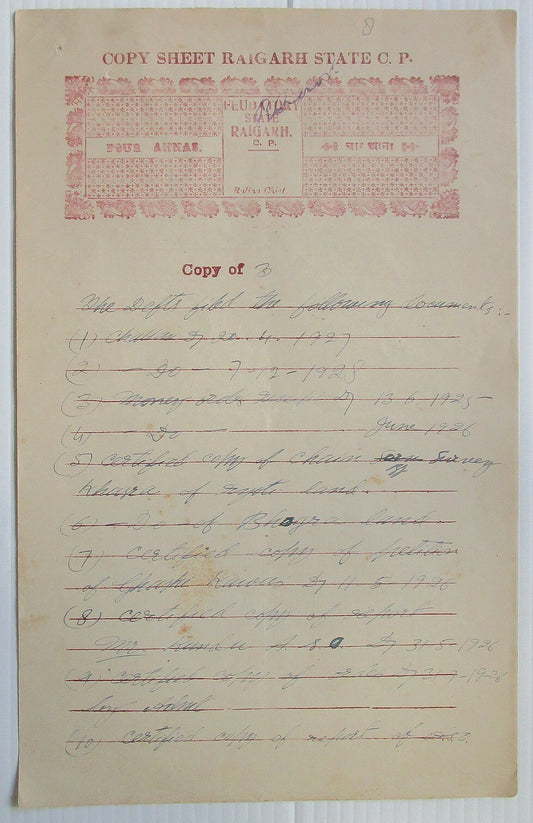 8
COPY SHEET RAIGARH STATE C. P.
FEUDATORY
STATE
RAIGARH.
C. P.
FOUR ANNAS.
चार आना
Copy of 3
The Defts filed the following documents:-
(1) Challan D/ 20. 4. 1927
(2) - Do - 7-12-1928
(3) Money order D/ 13.6.1925-
(4) - Do - June 1926
(5) certified copy of chain Survey
Khasra of ryoti land.
(6) - Do - of Bhogra land.
(7) certified copy of petition
of D/ 11-5-1926
(8) certified copy of report
Mr. A. S. O. D/ 31-5-1926
(9) certified copy of order D/ 1926
by
(10) certified copy of report of